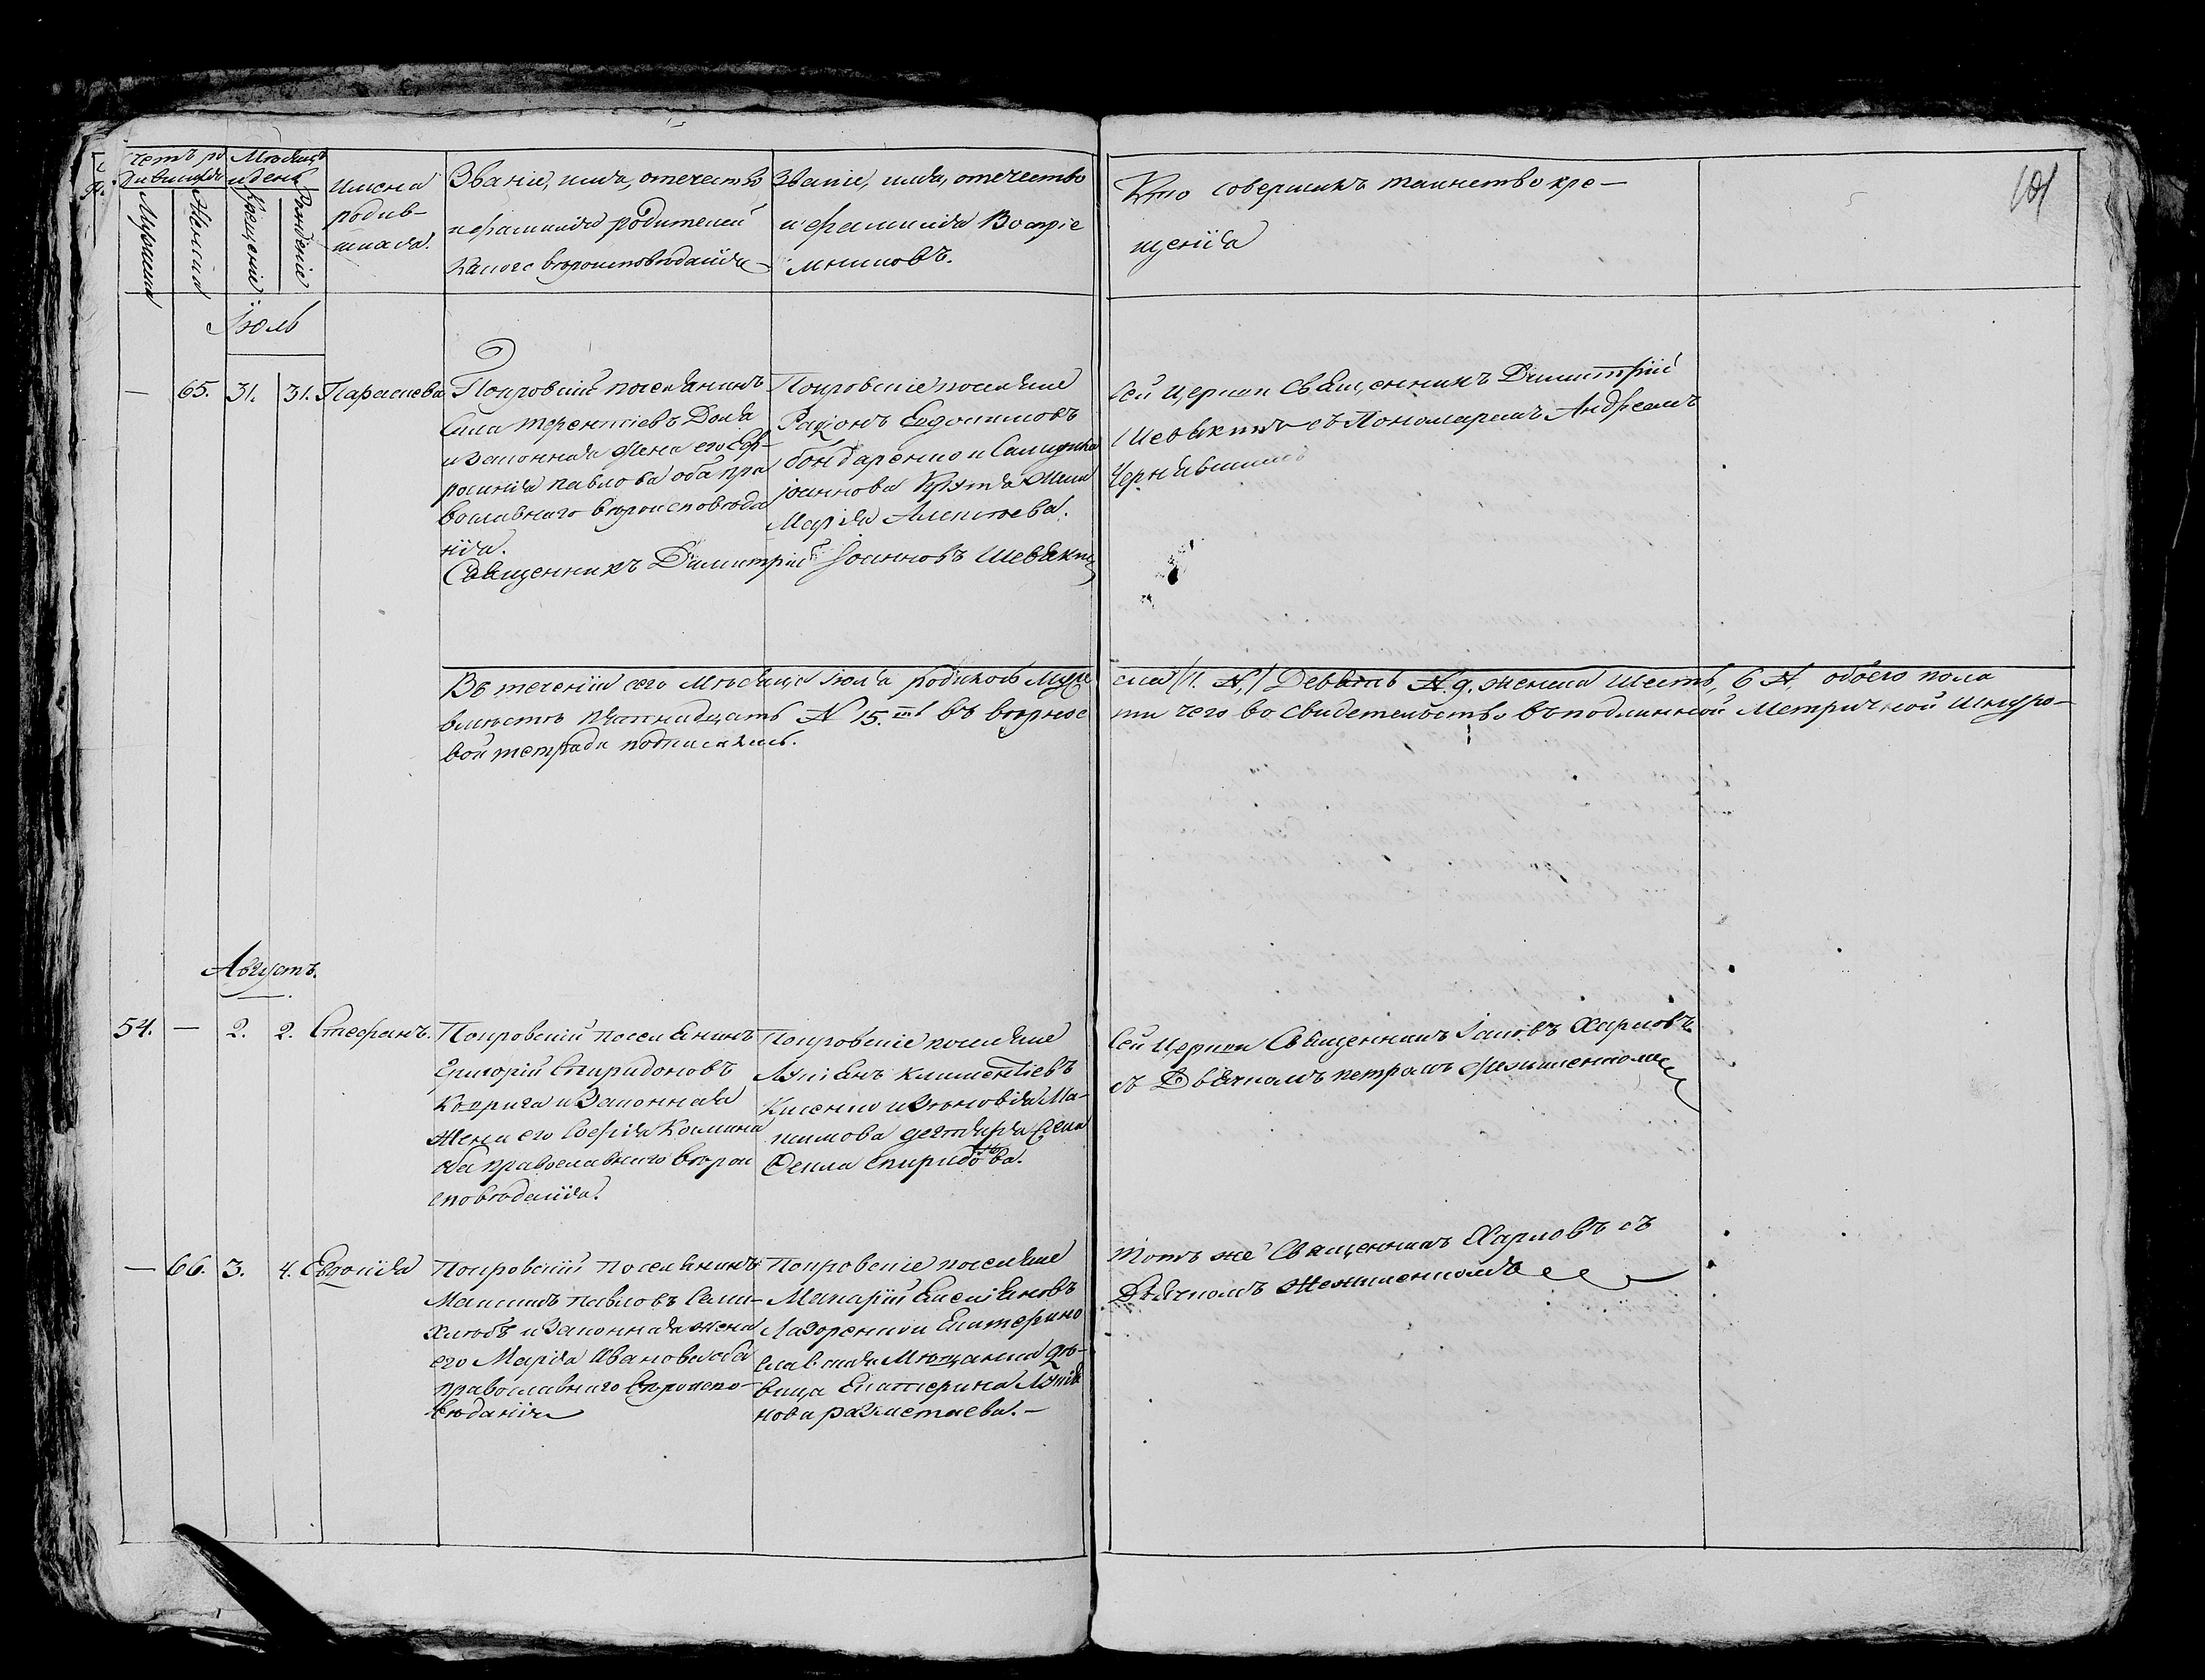 Счетъ ро
дившихся
Мѣсяцъ
и день
Мужеска
Женска
Крещеніе
Рожденіе
Имена
родив-
шихся.
Званіе, имя, отечество
и фамилія родителей
какого вѣроисповѣданія
Званіе, имя, отечество
и фамилія Воспріе
мниковъ.
Кто совершилъ таинство кре-
щенія
101
Іюль
— 65. 31. 31. Параскева
Покровскій поселянинъ
Сила Терентіевъ Доля
и законная жена его Евф-
росинія Павлова оба пра
вославнаго вѣроисповѣда
нія.
Покровскіе поселяне
Родіонъ Евдокимовъ
бондаренко и
Іоаннова Крутя жена
Марія Алексѣева.
Сей Церкви Священникъ Димитрій
Шевякинъ съ Пономаремъ Андреемъ
Чернявскимъ
Священникъ Димитрій Іоанновъ Шевякин
Въ теченіи сего мѣсяца Іюля родилось муже
ска /п. №,/ Девять № 9. женска шесть, 6 №, обоего пола
вмѣстѣ пятнадцать № 15.
ти чего во свидетельство въ подлинной Метричной шнуро-
вой тетради подписались.
Августъ.
54. — 2. 2. Стефанъ.
Покровскій поселянинъ
Григорій Спиридоновъ
Коврига и законная
жена его Софія Космина
оба православнаго вѣрои
сповѣданія.
Покровскіе поселяне
Лукіянъ Климентіевъ
Кисенко и Зѣновія Ма-
ксимова дегтяря жена
Фекла Спиридонова.
Сей Церкви Священникъ Іаковъ Харловъ
съ Дьячкомъ Петромъ
— 66. 3. 4. Евдокія
Покровскій поселянинъ
Максимъ Павловъ Сами-
хлебъ и законная жена
его Марія Иванова оба
православнаго вѣроиспо-
вѣданія
Покровскіе поселяне
Макарій Емеліановъ
Лазоренко и Екатерино
славская Мѣщанка дѣ-
вица Екатерина Лукія
нова
Тотъ же Священникъ Харловъ съ
Дьячкомъ